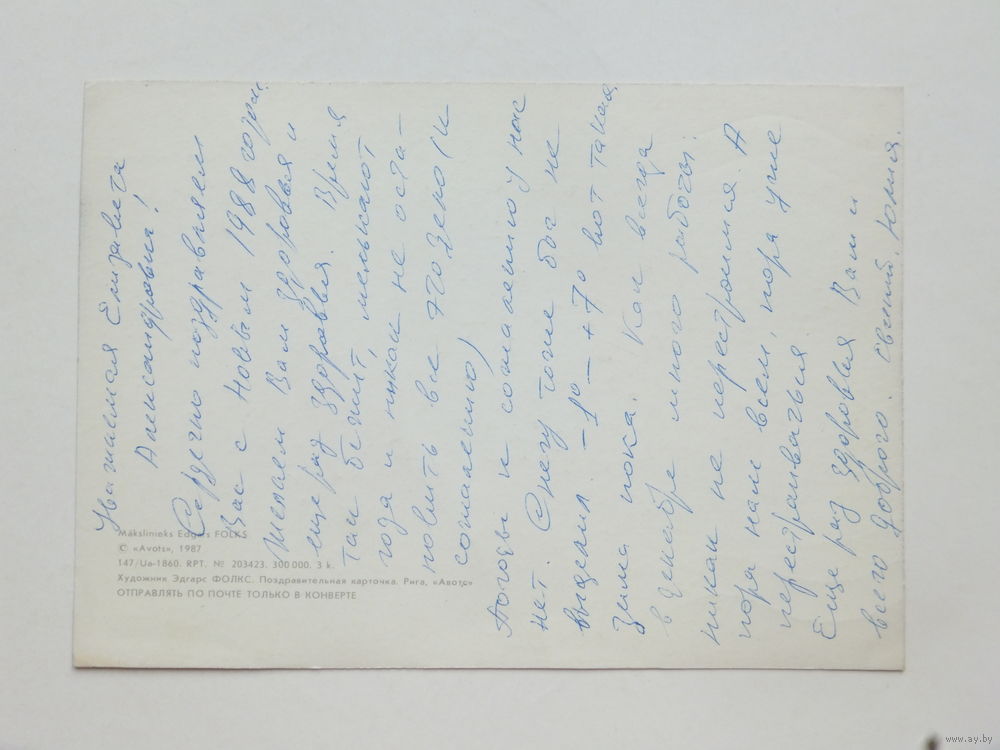 Уважаемая Елизавета
Александровна!
Сердечно поздравляем
Вас с Новым 1988 годом.
Желаем Вам здоровья и
еще раз здоровья. Время
так бежит, мелькают
года и никак не оста-
новить все это (к
сожалению)
Погоды к сожалению у нас
нет. Снегу тоже бог не
выделил. -1° – +7° вот такая
зима пока. Как всегда
в декабре много работы.
никак не перестроимся. А
пора нам всем, пора уже
перестраиваться.
Еще раз здоровья Вам и
всего доброго. Евгений. Юлия.
Mākslinieks Edgars FOLKS
© «Avots», 1987
147/Ua-1860. RPT. № 203423. 300 000. 3 k.
Художник Эдгарс ФОЛКС. Поздравительная карточка. Рига, «Авотс»
ОТПРАВЛЯТЬ ПО ПОЧТЕ ТОЛЬКО В КОНВЕРТЕ
www.ay.by